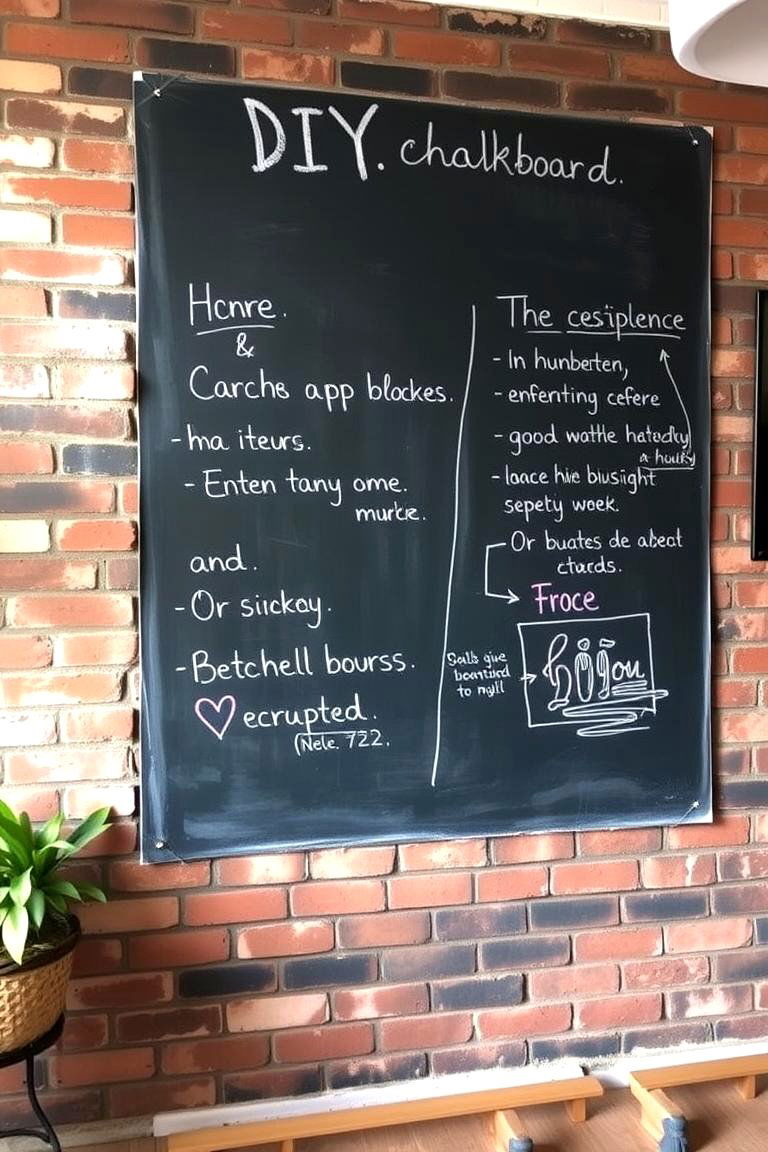 DIY. chalkboard.
Hcnre.
&
Carchs app blockes.
- ha iteurs.
- Enten tany ome.
murke.
and.
- Or sickoy.
- Betchell bourss.
ecrupted.
(Nele. 722.
The cesiplence
- In hunberten,
- enfenting cefere
- good wathle hatedky
a houky
- loace hive biusight
sepety week.
Or buates de abect
ctards.
Froce
to mgll